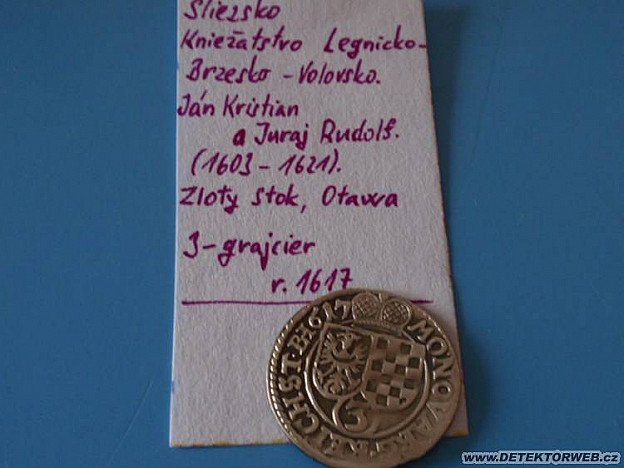 Sliezsko
Kniežatstvo Legnicko-
Brzesko - Volovsko.
Ján Kristian
a Juraj Rudolf.
(1603 - 1621).
Zloty Stok, Otawa
3-grajcier
r. 1617
1617 MONO
3
www.DETEKTORWEB.cz